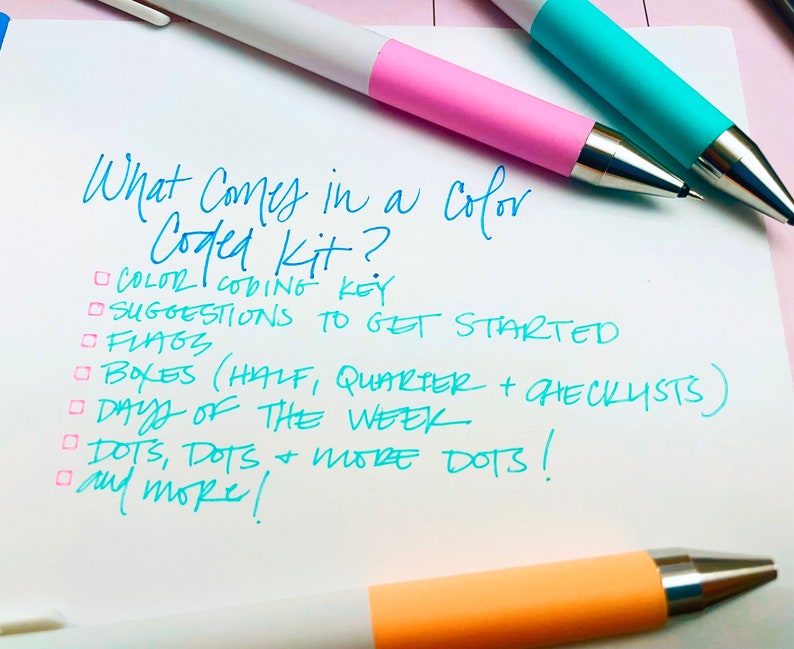 What Comes in a Color
Coded Kit?
COLOR CODING KEY
SUGGESTIONS TO GET STARTED
FLAGS
BOXES (HALF, QUARTER + CHECKLISTS)
DAYS OF THE WEEK
DOTS, DOTS + MORE DOTS!
and more!